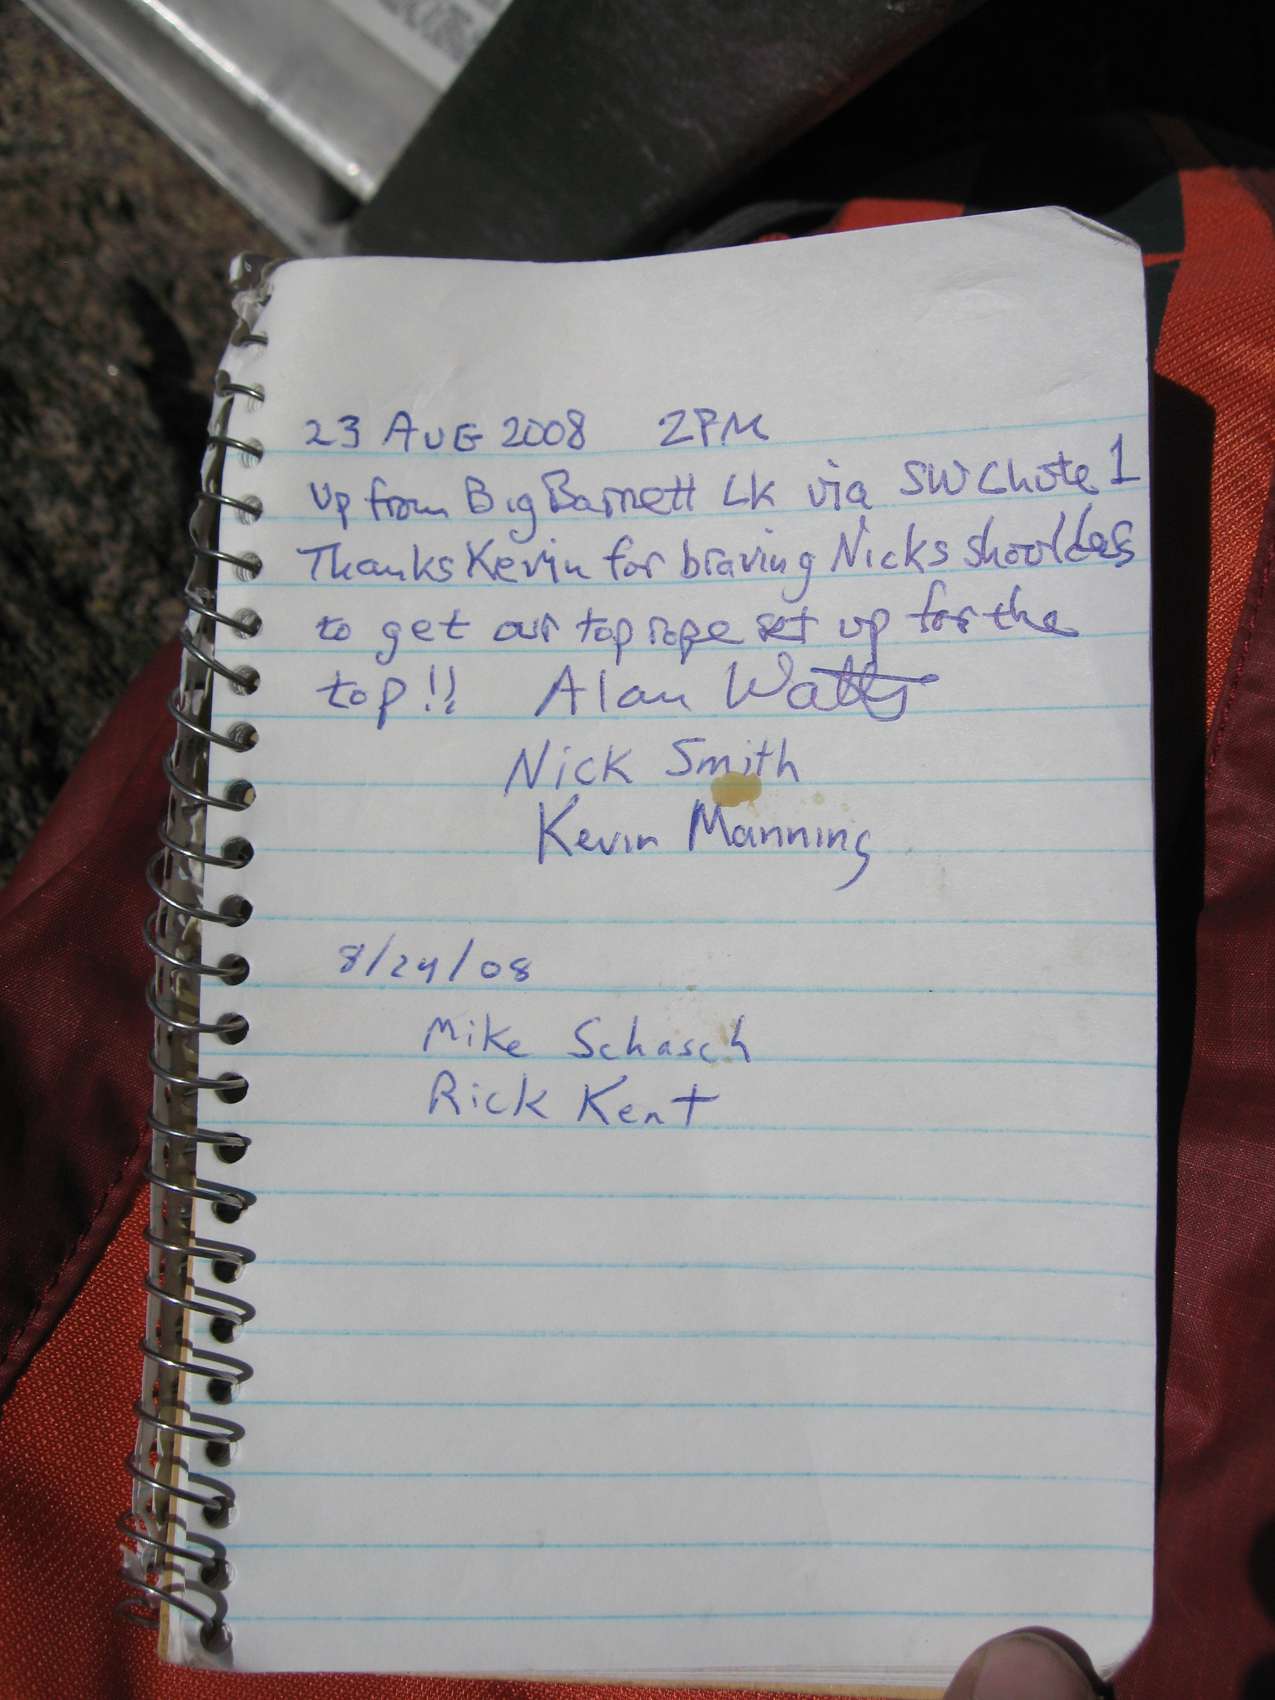 23 AUG 2008 2PM
Up from Big Barnett Lk via SW Chute 1
Thanks Kevin for braving Nicks shoulders
to get our top rope set up for the
top!! Alan Watts
Nick Smith
Kevin Manning
8/24/08
Mike Schasch
Rick Kent